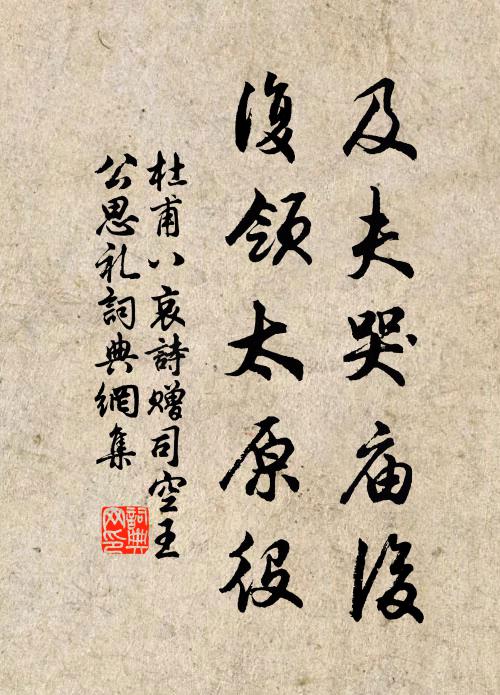 及夫哭庙後
復領太原役
杜甫八哀詩赠司空王
公思礼詞典網集
詞典
网印